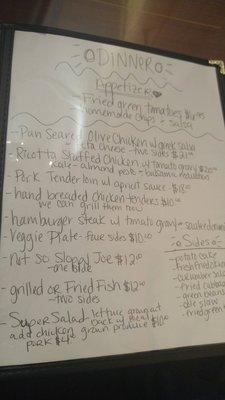 DINNER
Appetizer
Fried green tomatoes
homemade chips & salsa
-Pan Seared Olive Chicken w/ greek salsa
feta cheese - two sides
-Ricotta Stuffed Chicken w/ tomato gravy
kale - almond pesto - balsamic reduction
-Pork Tenderloin w/ apricot sauce
-hand breaded chicken tenders $10
we can grill them too!
-hamburger steak w/ tomato gravy
-Veggie Plate - four sides $10.00
-Not So Sloppy Joe $12.00
-one side
-grilled or Fried Fish $12.00
-two sides
-Super Salad - lettuce
add chicken grown produce $10.00
pork $4
Sides
-potato cake
-fresh fried okra
-cucumber salad
-fried cabbage
-green beans
-cole slaw
-fried green